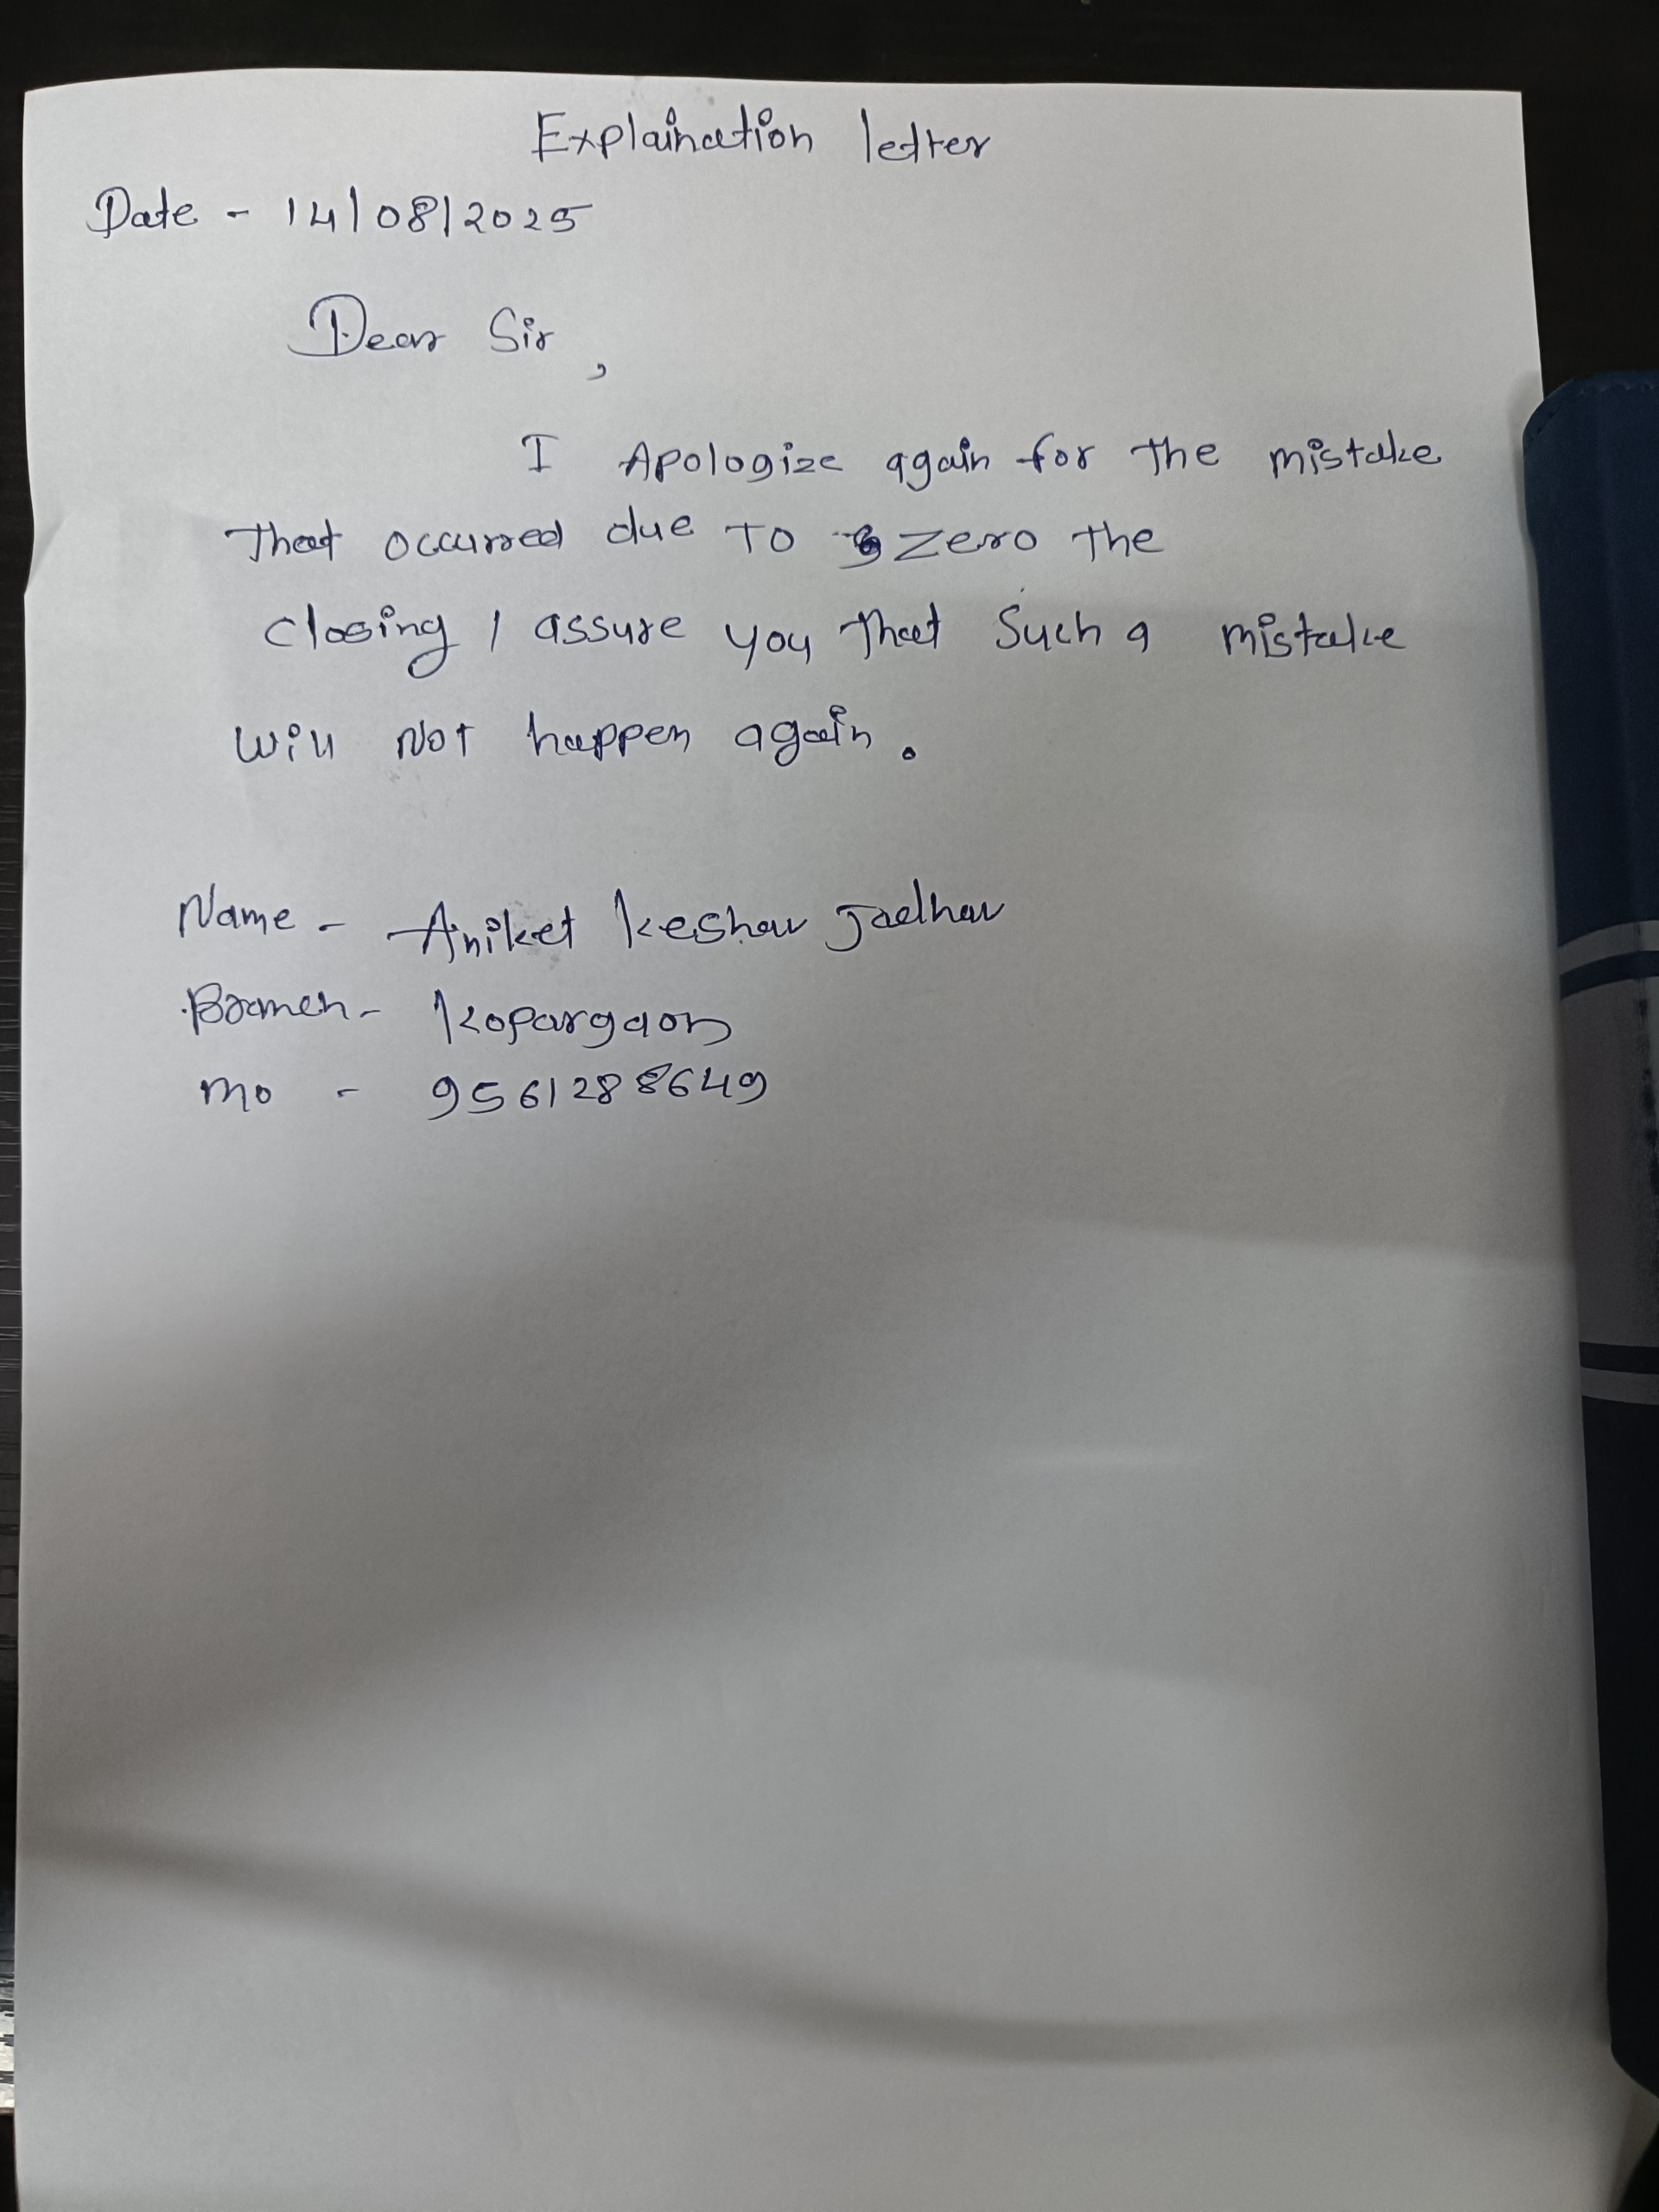 Explaination letter
Date - 14/08/2025
Dear Sir,
I Apologize again for the mistake
That occurred due to zero the
closing I assure you that such a mistake
will Not happen again.
Name - Aniket Keshav Jadhav
Branch - Kopargaon
mo - 9561288649